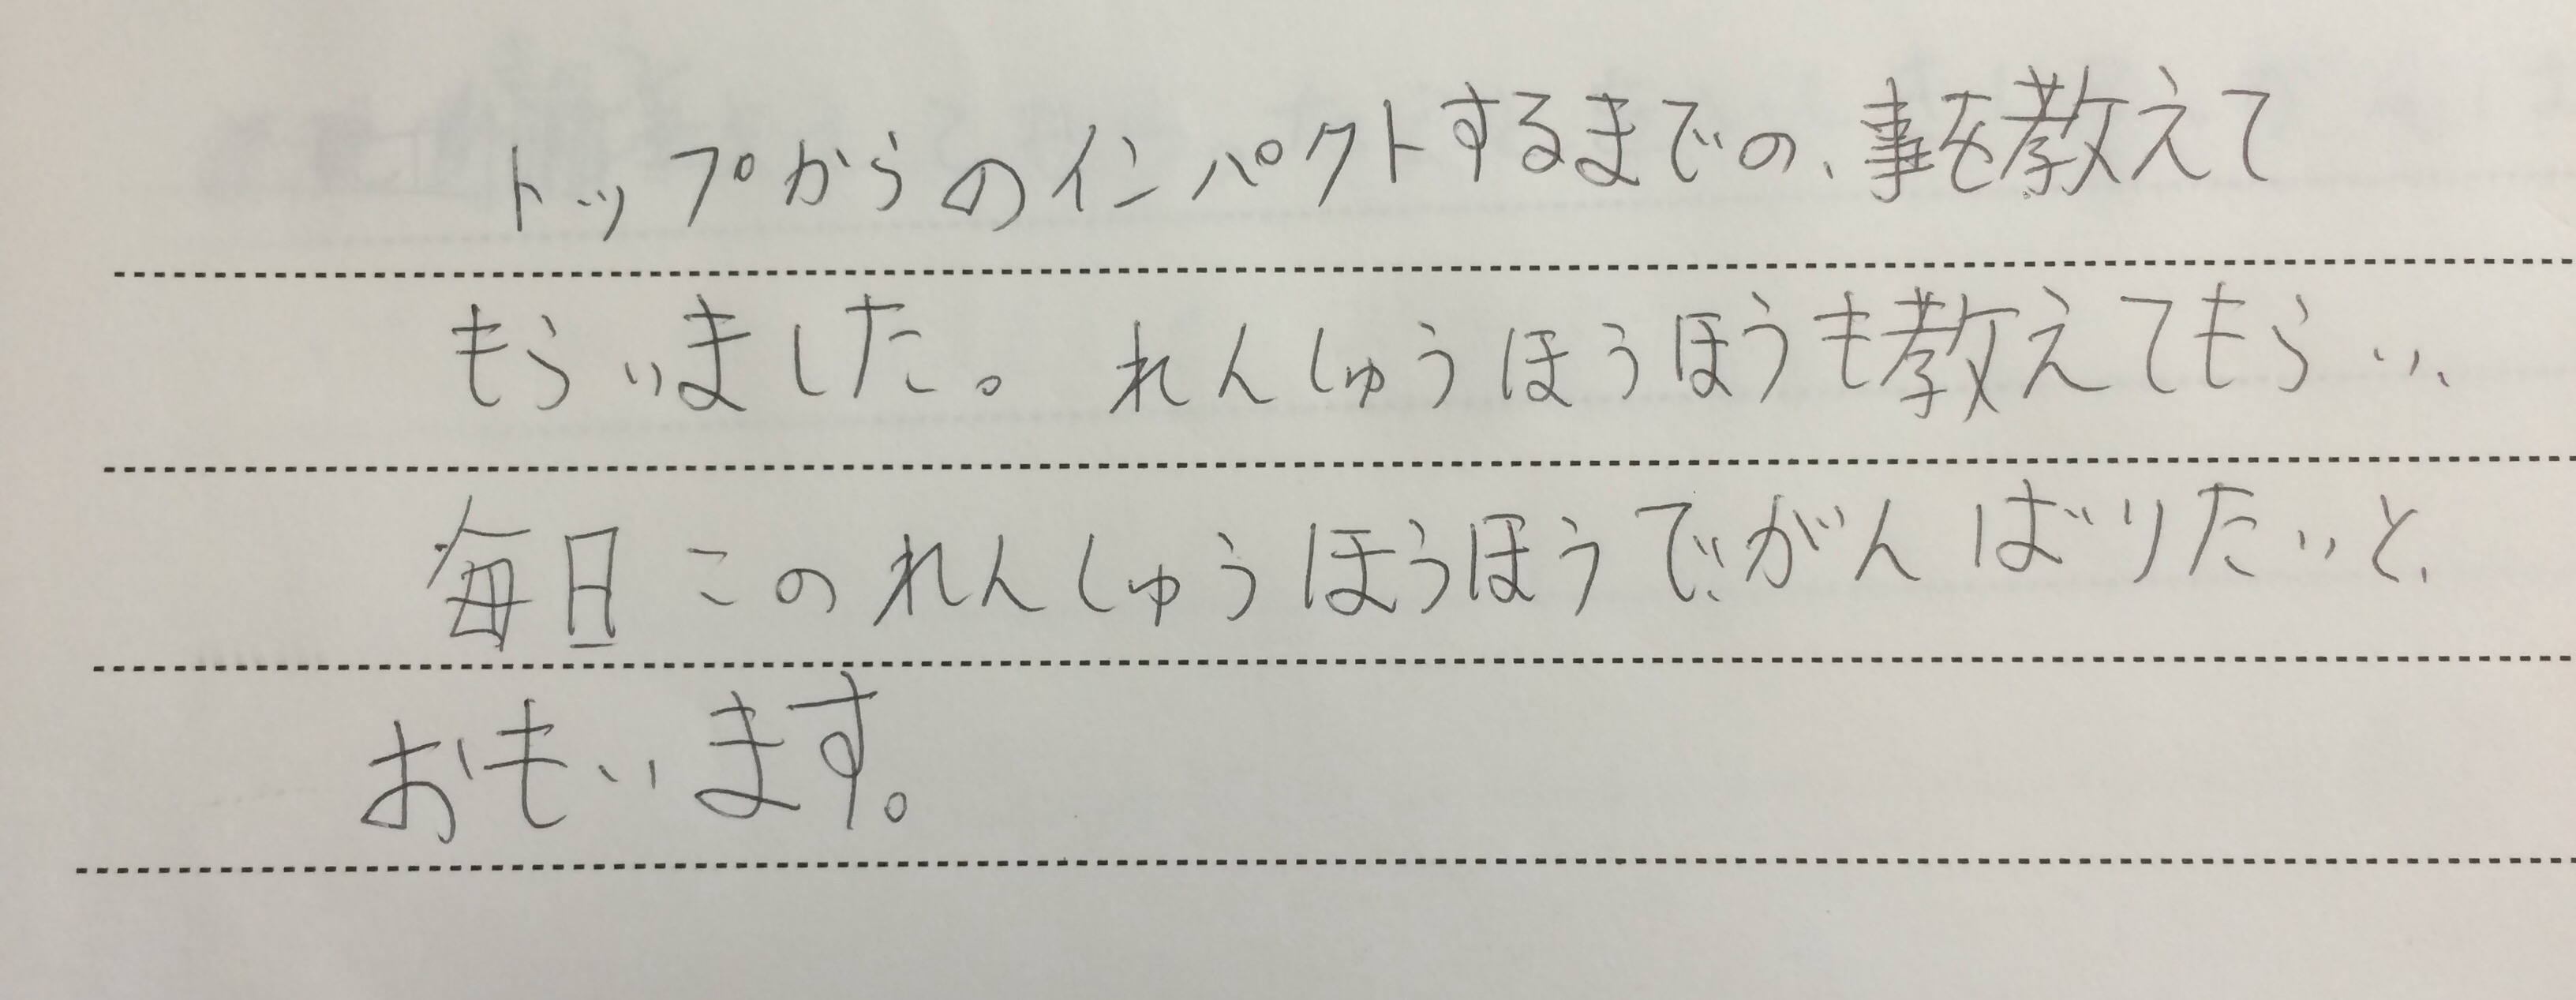 トップからのインパクトするまでの、事を教えて
もらいました。れんしゅうほうほうも教えてもらい、
毎日このれんしゅうほうほうで、がんばりたいと、
おもいます。